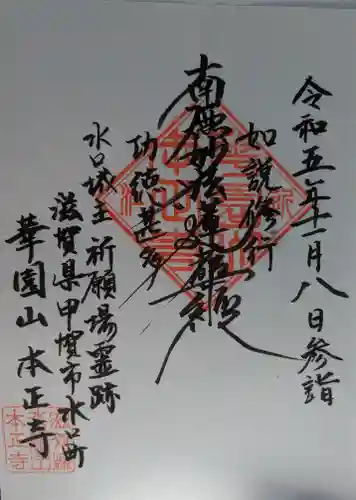 令和五年十一月八日参詣
如説修行
南無妙法蓮華経
功徳甚多
水口城主 祈願場霊跡
滋賀県甲賀市水口町
華園山 本正寺
本正寺